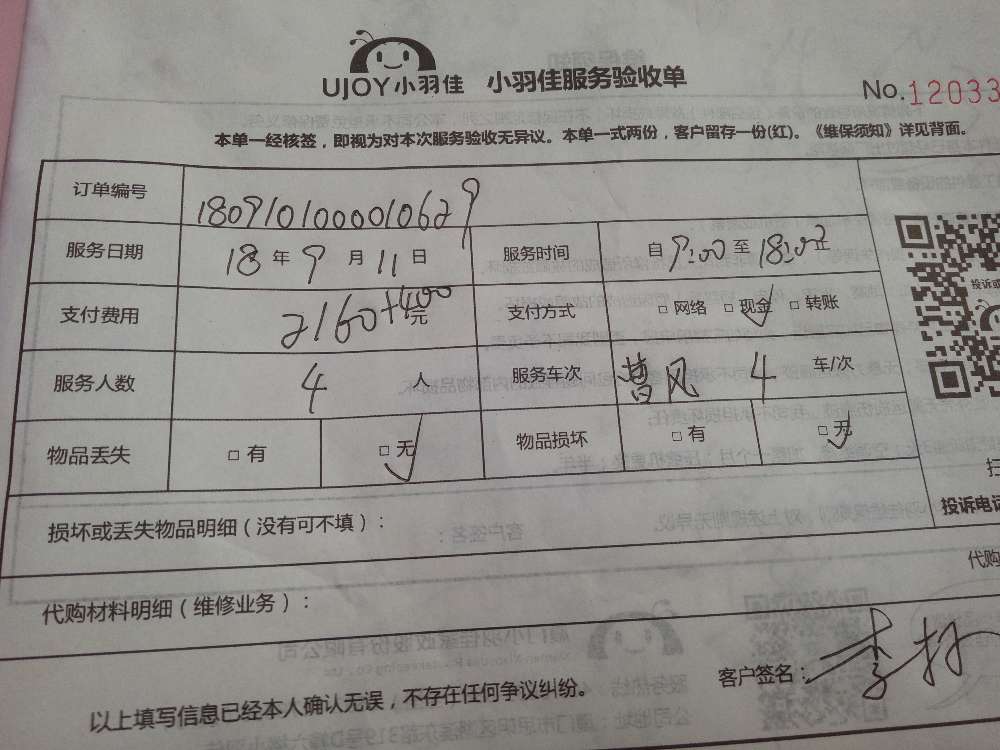 UJOY小羽佳 小羽佳服务验收单
No.12033
本单一经核签，即视为对本次服务验收无异议。本单一式两份，客户留存一份(红)。《维保须知》详见背面。
订单编号 1809101000010629
服务日期 18 年 9 月 11 日 服务时间 自 9:00 至 18:00 止
支付费用 2160+400 元 支付方式 □ 网络 □ 现金 □ 转账
服务人数 4 人 服务车次 4 车/次
物品丢失 □ 有 □ 无 物品损坏 □ 有 □ 无
损坏或丢失物品明细（没有可不填）：
投诉电话
代购材料明细（维修业务）：
代购
客户签名：
以上填写信息已经本人确认无误，不存在任何争议纠纷。